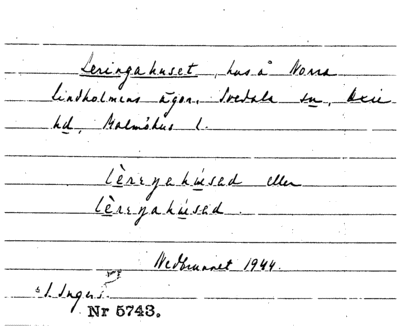 Leringahuset, hus å Norra
Lindholmens ägor, Svedala sn, Oxie
hd, Malmöhus l.
lèreŋahʉ́sad eller
lèrɛŋahʉ́sad.
Nedbrunnet 1944.
I. Ingers.
Nr 5743.